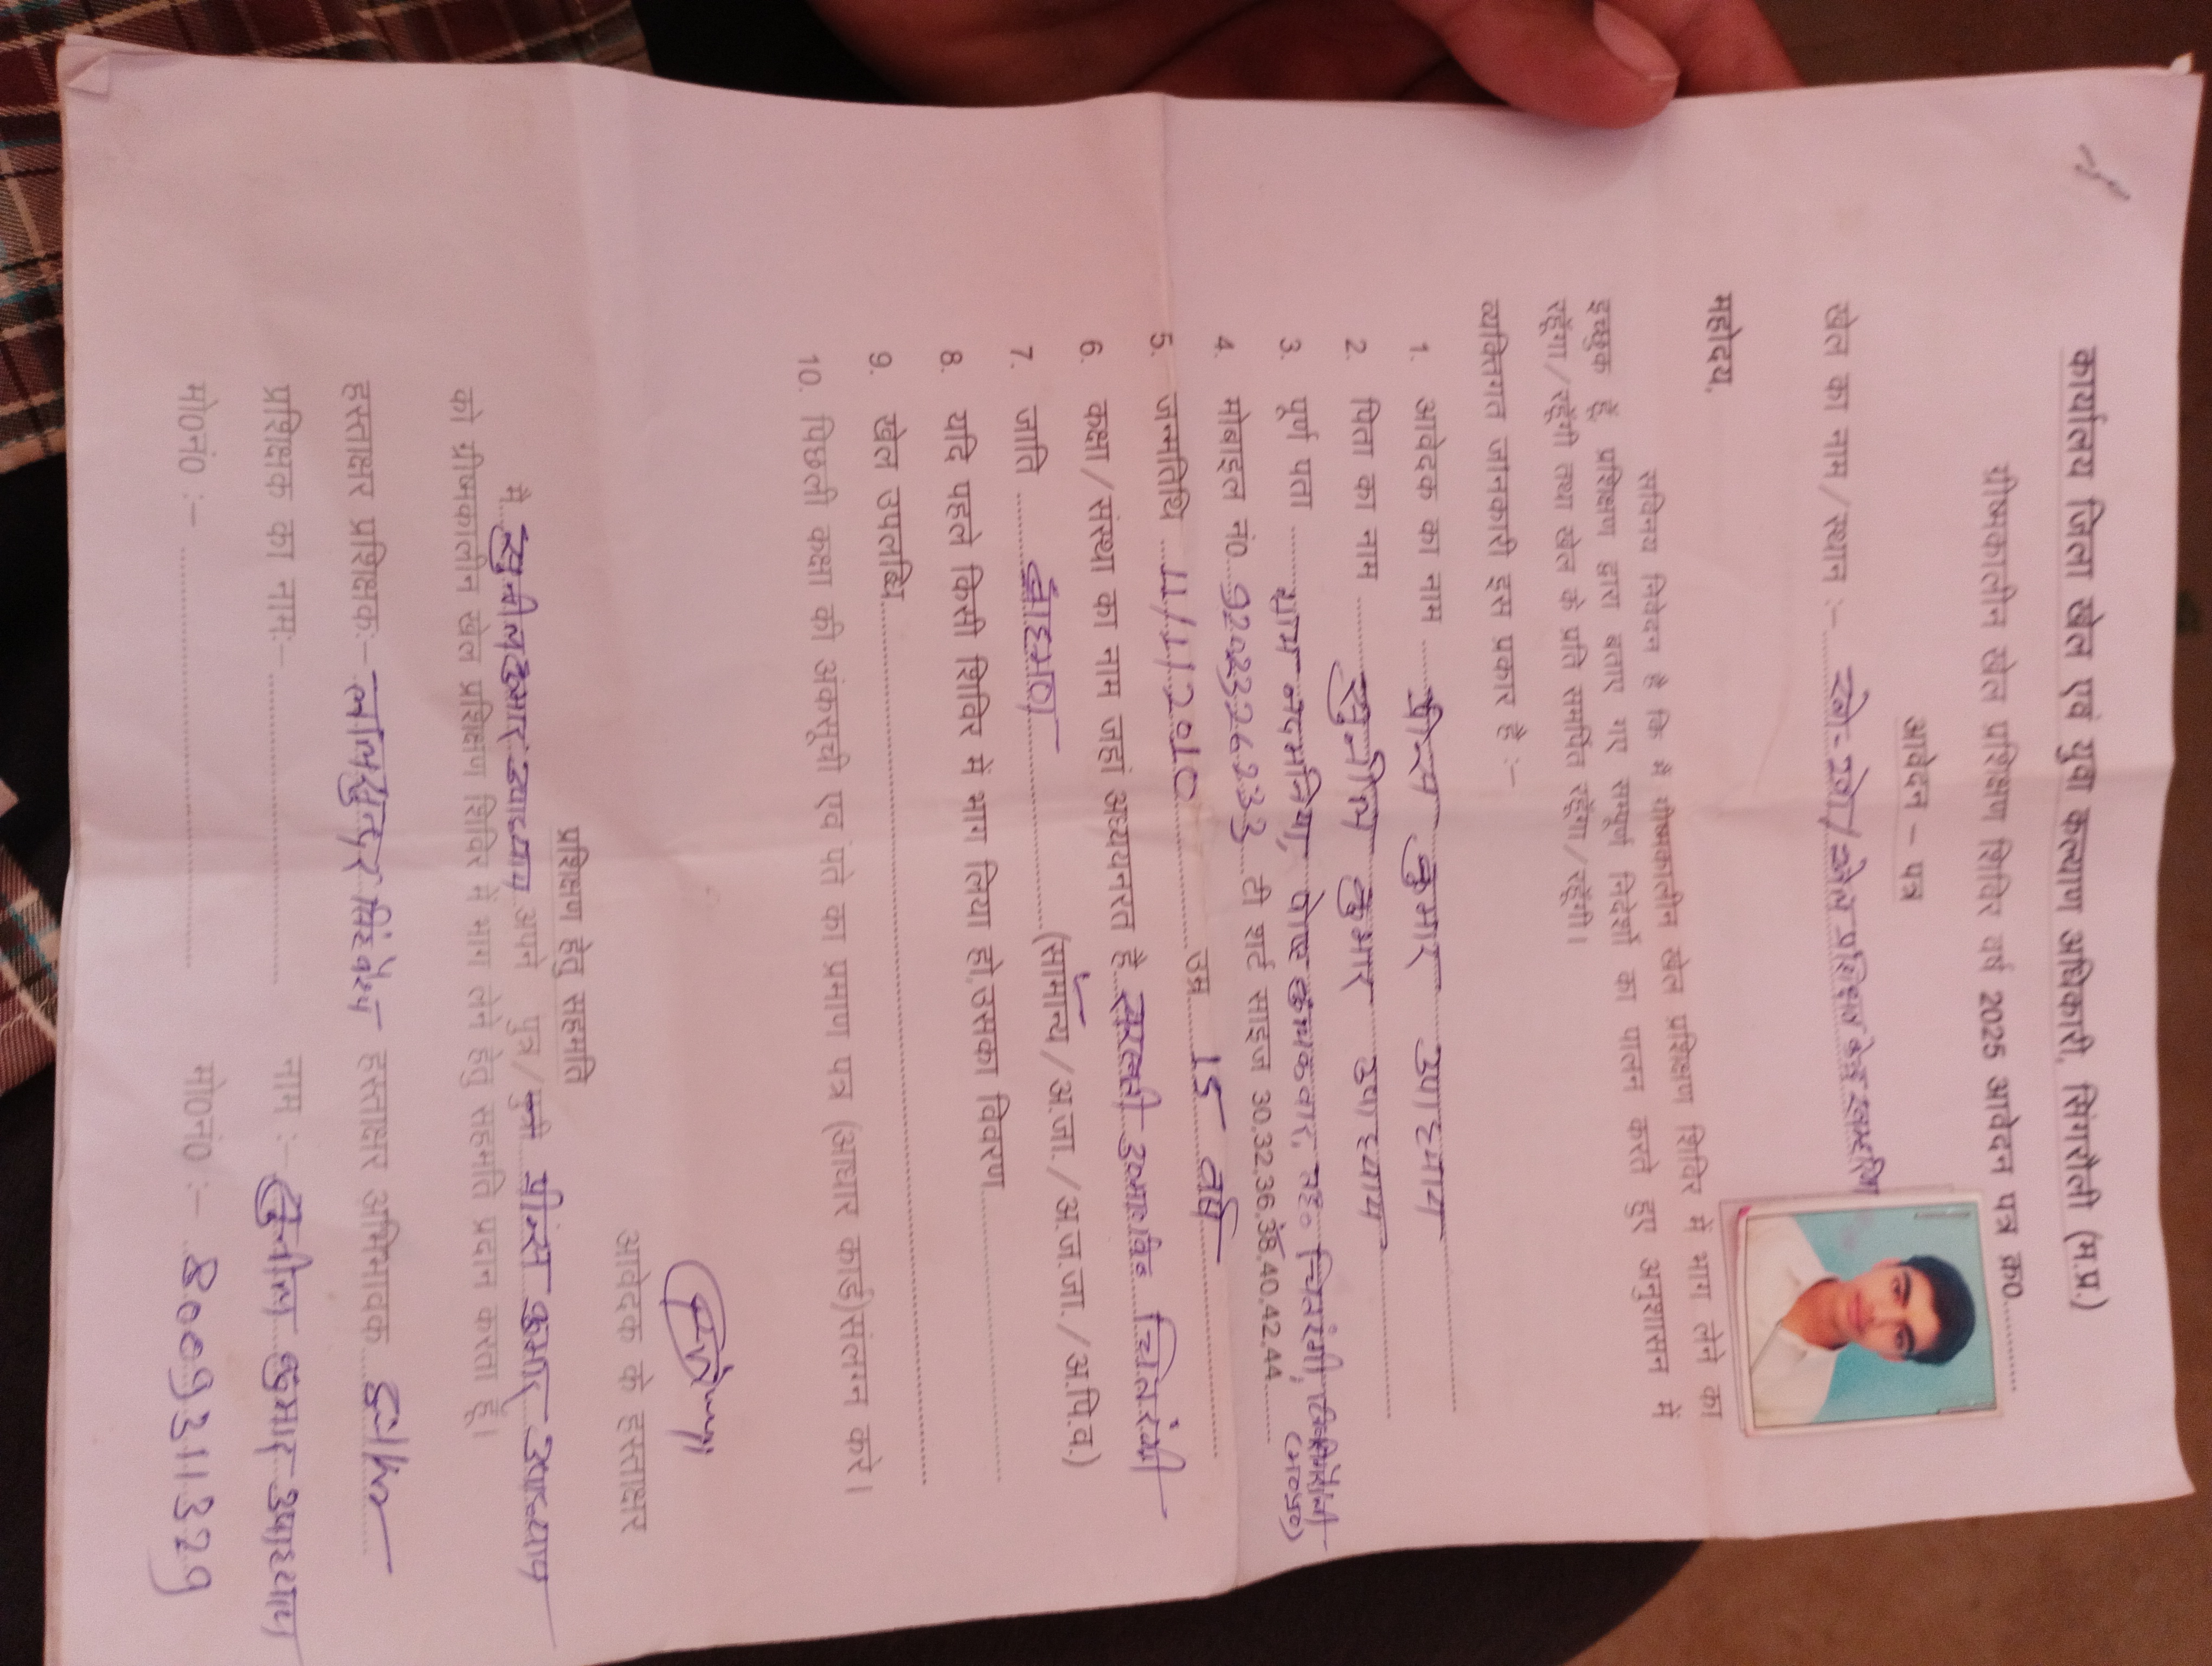 कार्यालय जिला खेल एवं युवा कल्याण अधिकारी, सिंगरौली (म.प्र.)
ग्रीष्मकालीन खेल प्रशिक्षण शिविर वर्ष 2025 आवेदन पत्र क्र0..........
आवेदन – पत्र
खेल का नाम/स्थान :– खो-खो/खेल प्रशिक्षण केन्द्र
महोदय,
सविनय निवेदन है कि मैं ग्रीष्मकालीन खेल प्रशिक्षण शिविर में भाग लेने का
इच्छुक हूँ प्रशिक्षण द्वारा बताए गए सम्पूर्ण निर्देशों का पालन करते हुए अनुशासन में
रहूँगा/रहूँगी तथा खेल के प्रति समर्पित रहूँगा/रहूँगी।
व्यक्तिगत जानकारी इस प्रकार है :–
1. आवेदक का नाम ..... प्रीन्स कुमार उपाध्याय
2. पिता का नाम ..... सुनील कुमार उपाध्याय
3. पूर्ण पता ..... ग्राम पोस्ट चितरंगी, (म०प्र०)
4. मोबाइल नं0. टी शर्ट साइज 30,32,36,38,40,42,44.....
5. जन्मतिथि ... 11/11/2010 ..... उम्र ..... 15 वर्ष
6. कक्षा/संस्था का नाम जहां अध्ययनरत है. सरस्वती उ०मा०वि० चितरंगी
7. जाति ..... ब्राहमण .....(सामान्य/अ.जा./अ.ज.जा./अ.पि.व.)
8. यदि पहले किसी शिविर में भाग लिया हो,उसका विवरण..........
9. खेल उपलब्धि..........
10. पिछली कक्षा की अंकसूची एवं पते का प्रमाण पत्र (आधार कार्ड)संलग्न करें।
आवेदक के हस्ताक्षर
प्रशिक्षण हेतु सहमति
मैं. सुनील कुमार उपाध्याय अपने पुत्र/पुत्री प्रीन्स कुमार उपाध्याय
को ग्रीष्मकालीन खेल प्रशिक्षण शिविर में भाग लेने हेतु सहमति प्रदान करता हूँ।
हस्ताक्षर प्रशिक्षक:– हस्ताक्षर अभिभावक.....
प्रशिक्षक का नाम:– .......... नाम :– सुनील कुमार उपाध्याय
मो0नं0 :– .......... मो0नं0 :–